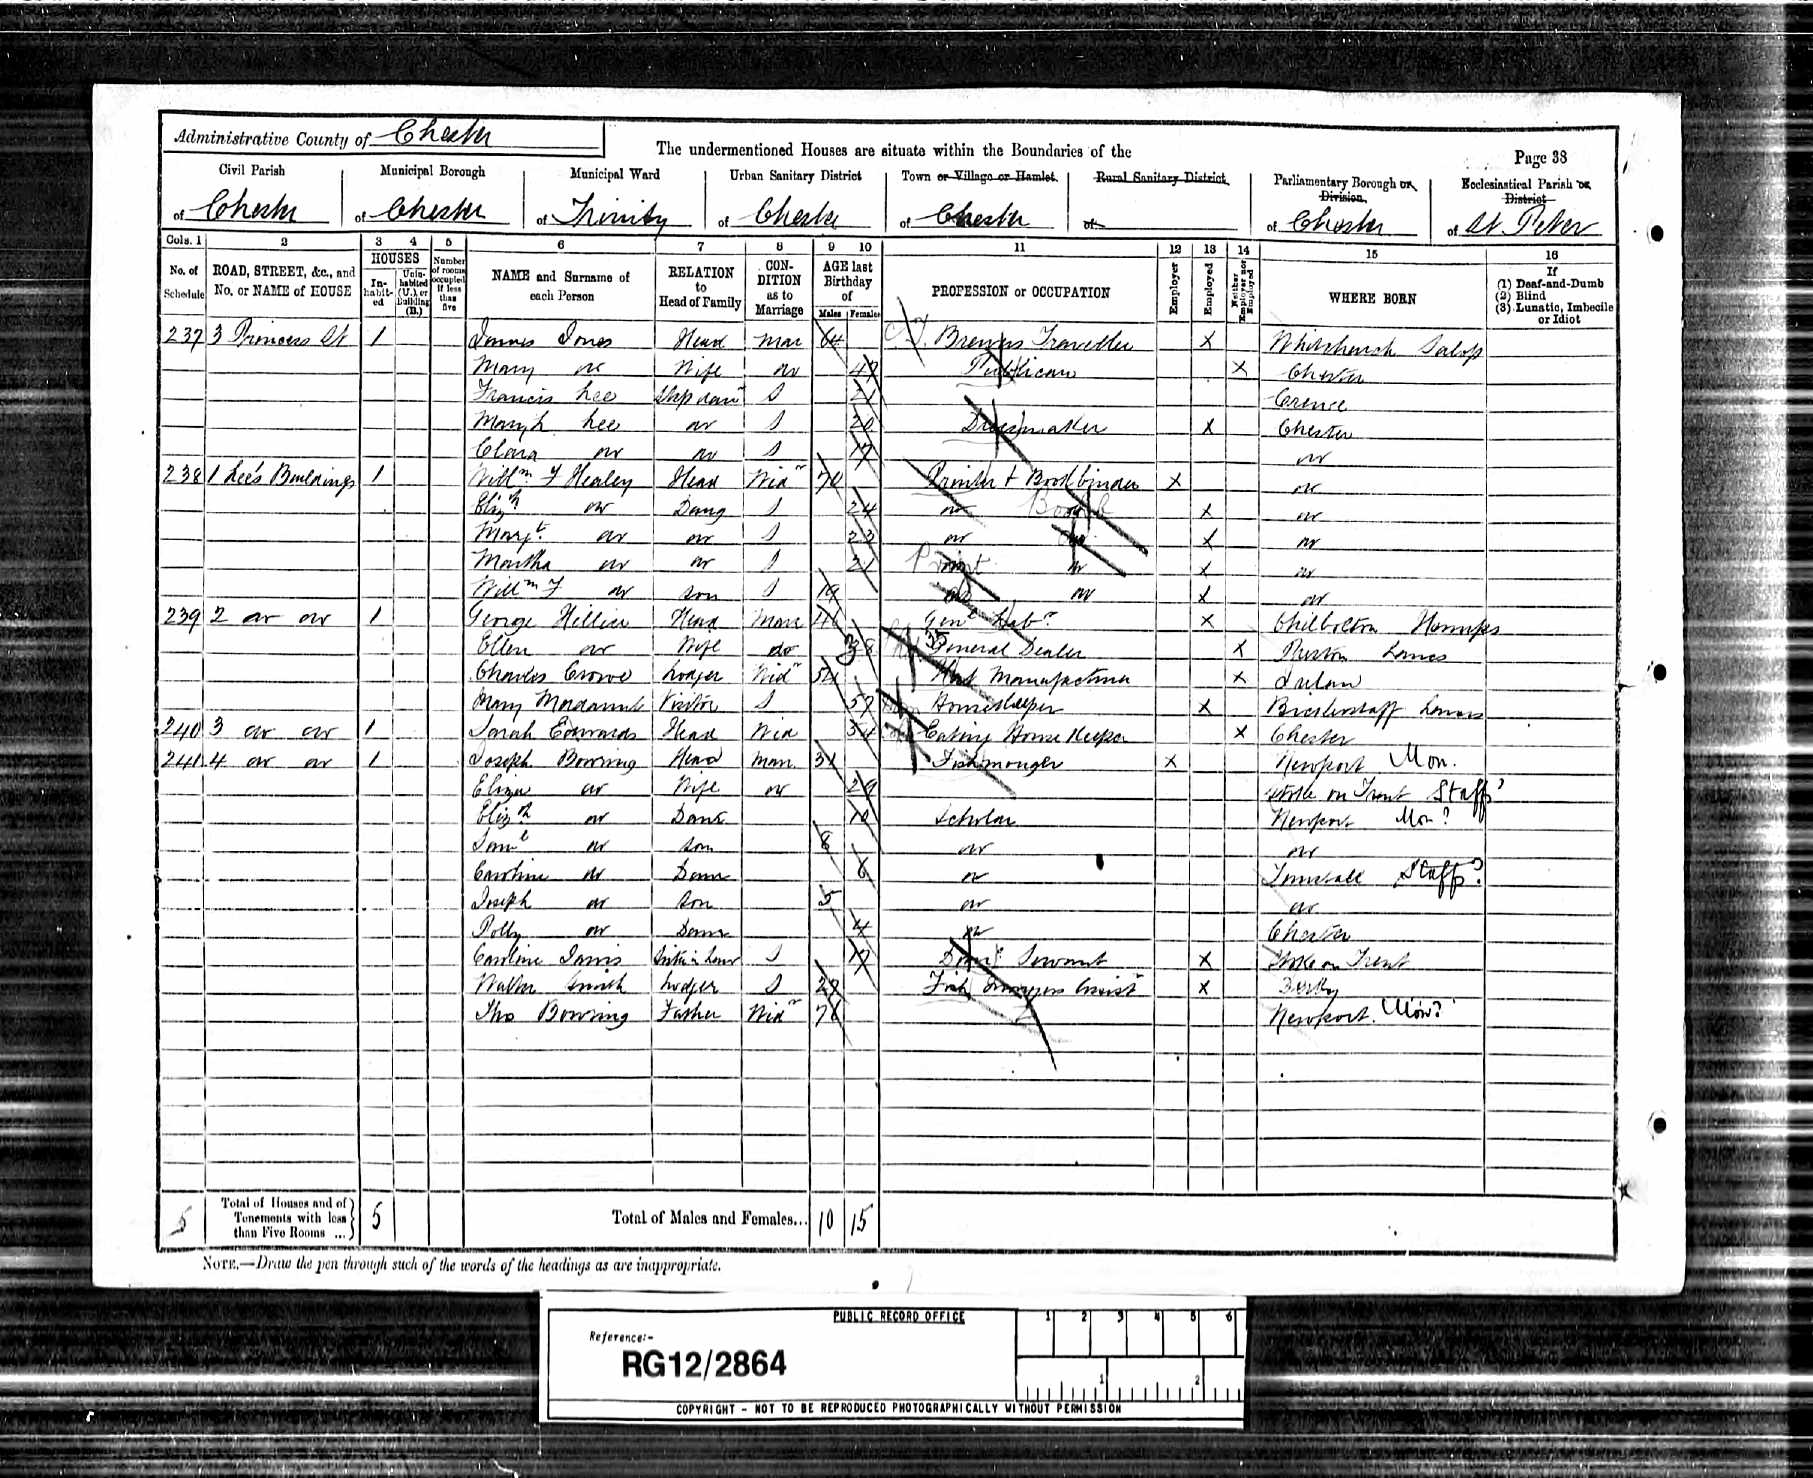 Administrative County of Chester
The undermentioned Houses are situate within the Boundaries of the
Page 38
Civil Parish of Chester
Municipal Borough of Chester
Municipal Ward of Trinity
Urban Sanitary District of Chester
Town or Village or Hamlet of Chester
Rural Sanitary District of
Parliamentary Borough or Division of Chester
Ecclesiastical Parish or District of St. Peter
Cols. 1 2 3 4 5 6 7 8 9 10 11 12 13 14 15 16
No. of Schedule
ROAD, STREET, &c., and No. or NAME of HOUSE
HOUSES
In-habit-ed
Unin-habited (U.), or Building (B.)
Number of rooms occupied if less than five
NAME and Surname of each Person
RELATION to Head of Family
CON-DITION as to Marriage
AGE last Birthday of
Males Females
PROFESSION or OCCUPATION
Employer
Employed
Neither Employer nor Employed
WHERE BORN
If (1) Deaf-and-Dumb (2) Blind (3) Lunatic, Imbecile or Idiot
237 3 Princess St 1 James Jones Head Mar 64 Brewers Traveller X Whitchurch Salop
Mary do Wife do Publican X Chester
Francis Lee Stepdaur S 21
Mary h Lee do S 20 Dressmaker X Chester
Clara do do S 17 do
238 1 Lee's Buildings 1 Willm F Healey Head Widr 70 Printer & Bookbinder X do
Elizh do Daug S 24 do X do
Margt. do do S 23 do do X do
Martha do do S 21 do do X do
Willm F do Son S 19 do do X do
239 2 do do 1 George Head Marr Genl Labr. X Chilbolton Hamps
Ellen do Wife do 38 General Dealer X Preston Lancs
Charles Crowe Lodger Widr 54 Manufacturer X
Mary Visitor S 57 Housekeeper X Lancs
240 3 do do 1 Sarah Edwards Head Wid 54 Eating House Keeper X Chester
241 4 do do 1 Joseph Bowring Head Marr 31 Fishmonger X Newport Mon.
Eliza do Wife do 29 Stoke on Trent Staff?
Elizh do Daur 10 Scholar Newport Mon?
Saml do Son 8 do do
Caroline do Daur 6 do Tunstall Staff?
Joseph do Son 5 do do
Polly do Daur 4 do Chester
Caroline Sister in Law S 17 Domc Servant X Stoke on Trent
Walter Smith Lodger S Fish mongers Assist X Derby
Tho Bowring Father Widr 76 Newport. Mon?
5 Total of Houses and of Tenements with less than Five Rooms ... 5 Total of Males and Females... 10 15
NOTE.—Draw the pen through such of the words of the headings as are inappropriate.
PUBLIC RECORD OFFICE
1 2 3 4 5 6
Reference:-
RG12/2864
1 2
COPYRIGHT - NOT TO BE REPRODUCED PHOTOGRAPHICALLY WITHOUT PERMISSION